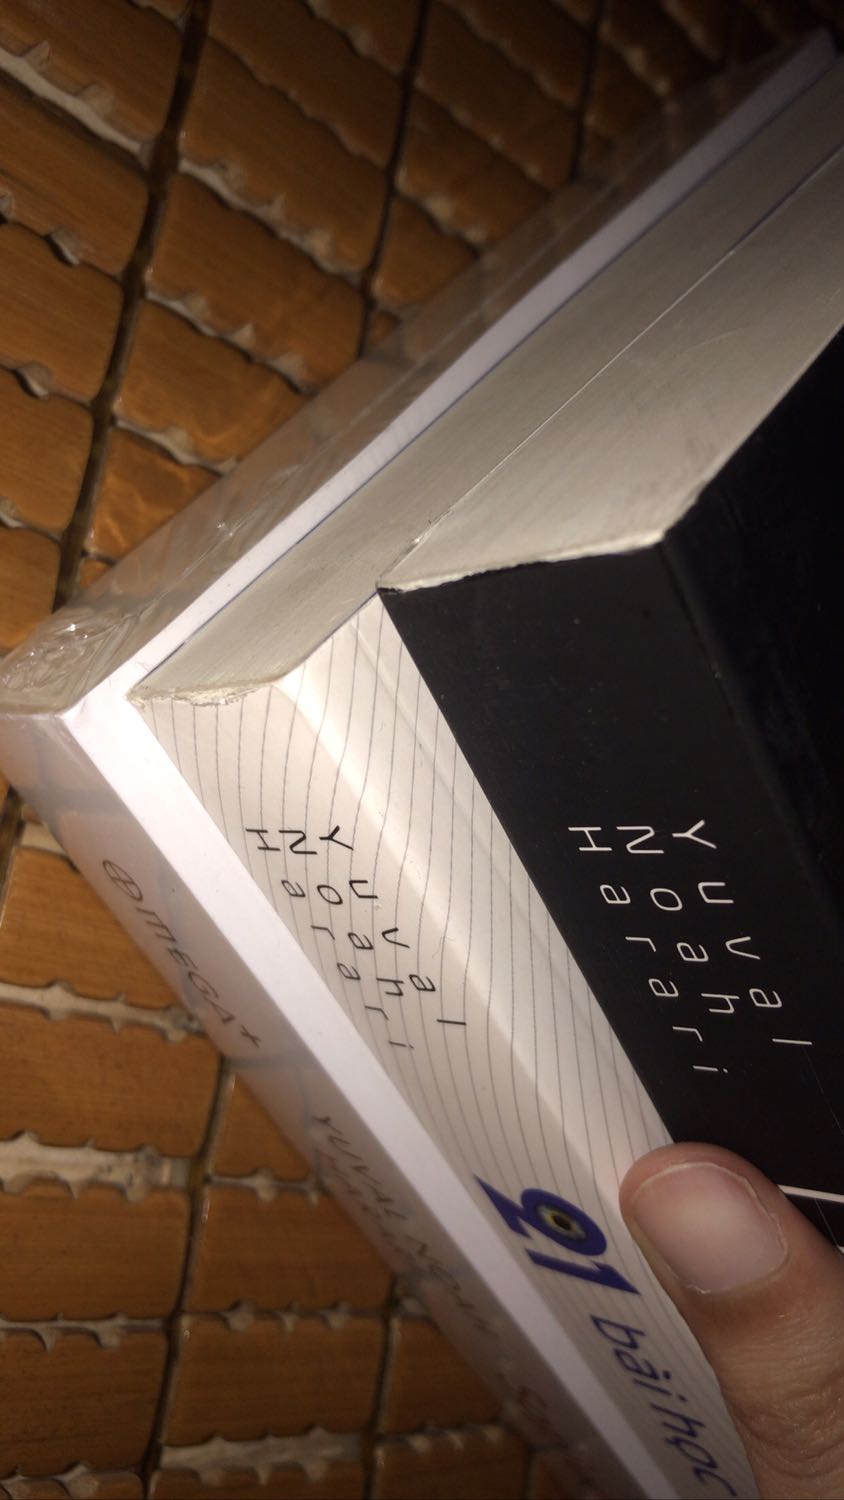 Yuval
Noah
Harari
Yuval
Noah
Harari
21 bài học
OMEGA+
YUVAL NOAH